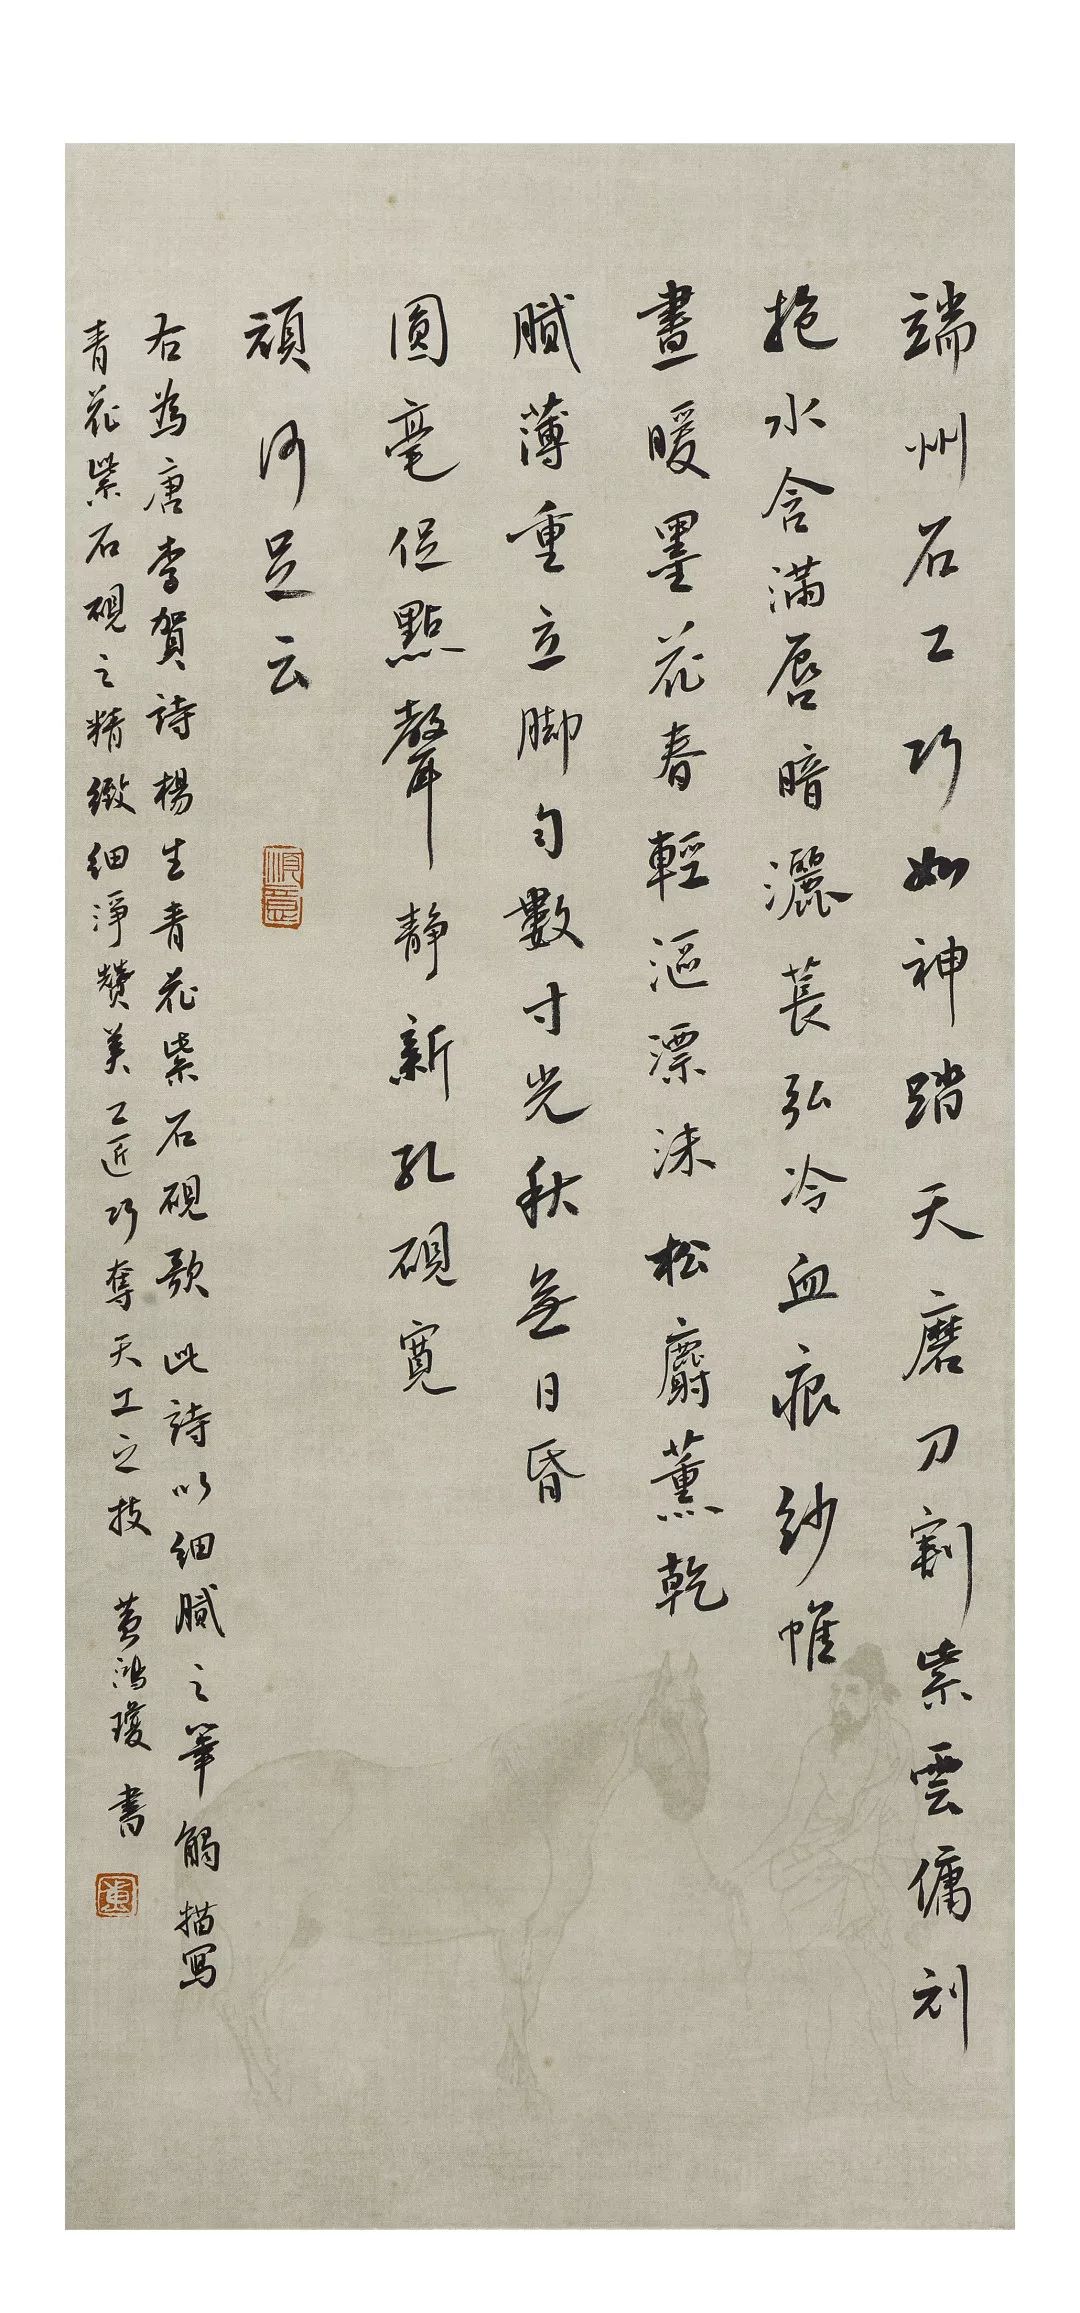 端州石工巧如神踏天磨刀割紫雲傭刓
抱水含滿唇暗灑萇弘冷血痕紗帷
晝暖墨花春輕漚漂沫松麝薰乾
膩薄重立脚勻數寸光秋無日昏
圓毫促點聲靜新孔硯寬
頑何足云
順意
右為唐李賀詩楊生青花紫石硯歌此詩以細膩之筆觸描寫
青花紫石硯之精緻細淨贊美工匠巧奪天工之技 黃鴻瓊書
黃